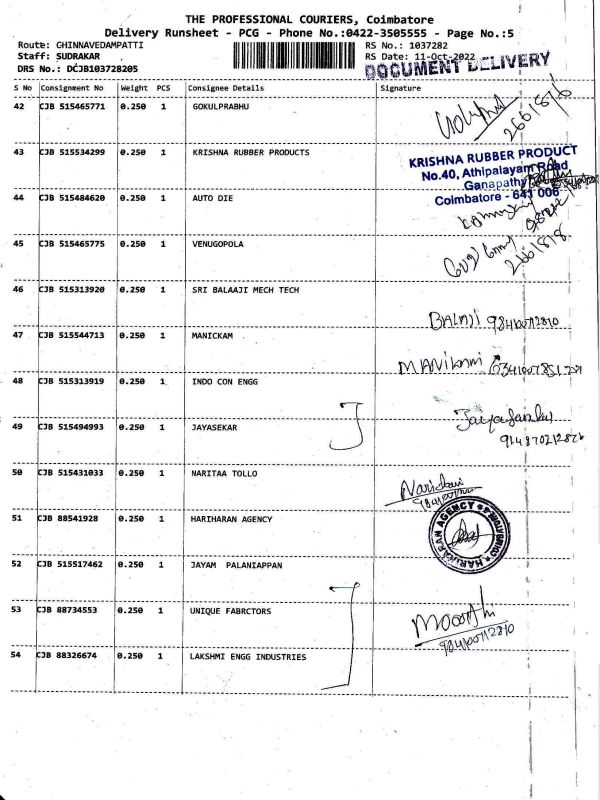 THE PROFESSIONAL COURIERS, Coimbatore
Delivery Runsheet - PCG - Phone No.:0422-3505555 - Page No.:5
Route: CHINNAVEDAMPATTI
RS No.: 1037282
Staff: SUDRAKAR
RS Date: 11-Oct-2022
DRS No.: DCJB103728205
DOCUMENT DELIVERY
S No Consignment No Weight PCS Consignee Details Signature
42 CJB 515465771 0.250 1 GOKULPRABHU
2661876
43 CJB 515534299 0.250 1 KRISHNA RUBBER PRODUCTS
KRISHNA RUBBER PRODUCT
No.40, Athipalayam Road
Ganapathy
Coimbatore - 641 006
44 CJB 515484620 0.250 1 AUTO DIE
45 CJB 515465775 0.250 1 VENUGOPOLA
2661818
46 CJB 515313920 0.250 1 SRI BALAAJI MECH TECH
BALAJI
47 CJB 515544713 0.250 1 MANICKAM
48 CJB 515313919 0.250 1 INDO CON ENGG
49 CJB 515494993 0.250 1 JAYASEKAR
50 CJB 515431033 0.250 1 NARITAA TOLLO
51 CJB 88541928 0.250 1 HARIHARAN AGENCY
HARIHARAN AGENCY
52 CJB 515517462 0.250 1 JAYAM PALANIAPPAN
53 CJB 88734553 0.250 1 UNIQUE FABRCTORS
Moorthi
54 CJB 88326674 0.250 1 LAKSHMI ENGG INDUSTRIES